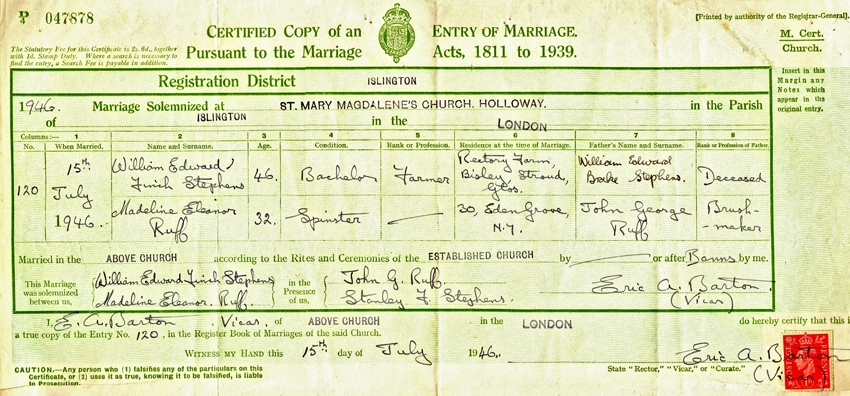 P/4 047878
CERTIFIED COPY of an ENTRY OF MARRIAGE.
Pursuant to the Marriage Acts, 1811 to 1939.
[Printed by authority of the Registrar-General.]
M. Cert.
Church.
The Statutory Fee for this Certificate is 2s. 6d., together
with 1d. Stamp Duty. Where a search is necessary to
find the entry, a Search Fee is payable in addition.
Insert in this
Margin any
Notes which
appear in the
original entry.
Registration District ISLINGTON
1946. Marriage Solemnized at ST. MARY MAGDALENE'S CHURCH, HOLLOWAY. in the Parish
of ISLINGTON in the LONDON
Columns:— 1 2 3 4 5 6 7 8
No. When Married. Name and Surname. Age. Condition. Rank or Profession. Residence at the time of Marriage. Father's Name and Surname. Rank or Profession of Father.
120 15th July 1946.
William Edward Finch Stephens 46. Bachelor Farmer Rectory Farm, Bisley Stroud, Glos. William Edward Brake Stephens. Deceased
Madeline Eleanor Ruff 32. Spinster — 30, Eden Grove, N.7. John George Ruff Brush-maker
Married in the ABOVE CHURCH according to the Rites and Ceremonies of the ESTABLISHED CHURCH by — or after Banns by me.
This Marriage was solemnized between us, William Edward Finch Stephens Madeline Eleanor Ruff. in the Presence of us, John G. Ruff. Stanley F. Stephens. Eric A. Barton. (Vicar)
I, E. A. Barton, Vicar, of ABOVE CHURCH in the LONDON do hereby certify that this i
a true copy of the Entry No. 120, in the Register Book of Marriages of the said Church.
WITNESS MY HAND this 15th day of July 1946. Eric A. Barton
State "Rector," "Vicar," or "Curate." (Vicar)
CAUTION.—Any person who (1) falsifies any of the particulars on this
Certificate, or (2) uses it as true, knowing it to be falsified, is liable
to Prosecution.